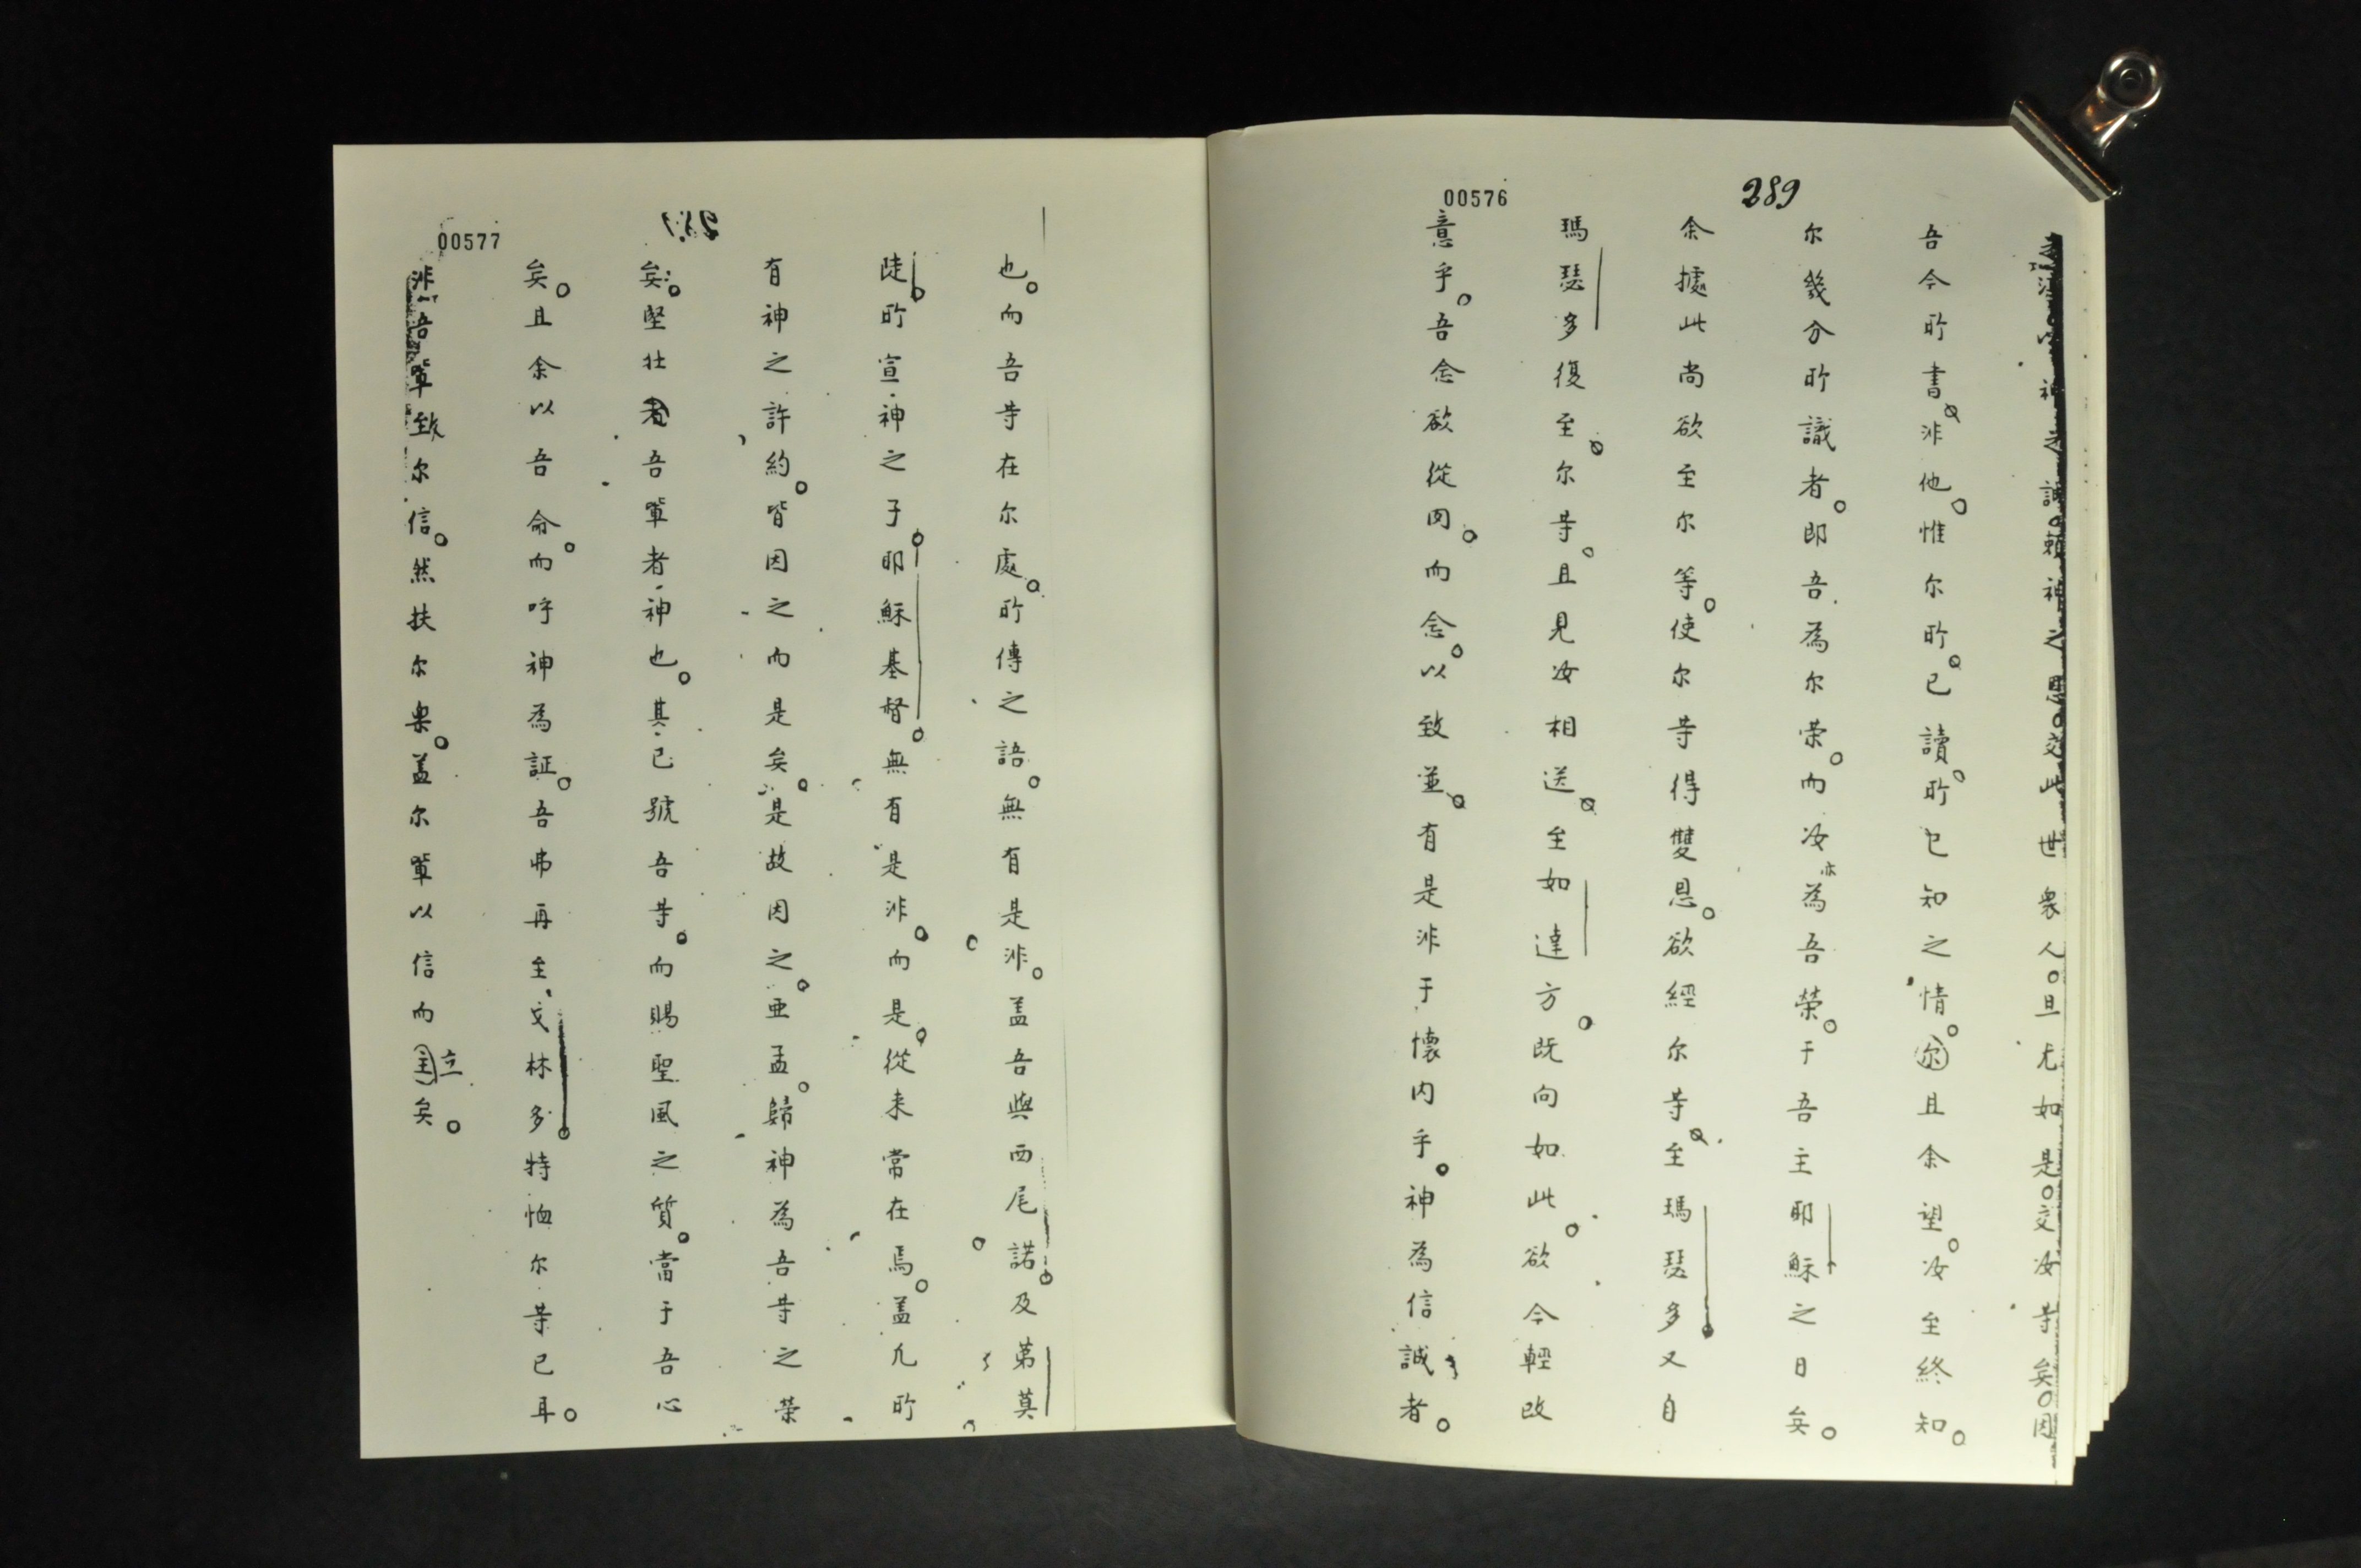 00576
289
以神之誠。賴神之恩。交此世衆人。且尤如是。交汝䒭矣。因
吾今所書。非他。惟尔所。已讀。所已知之情。尔且余望。汝至終知。
尔幾分所識者。即吾為尔荣。而汝亦為吾荣。于吾主耶穌之日矣。
余據此尚欲至尔等。使尔䒭得雙恩。欲經尔䒭。至瑪瑟多又自
瑪瑟多復至。尔䒭。且見汝相送。至如達方。既向如此。欲今輕改
意乎。吾念欲從肉。而念。以致並。有是非于懷内乎。神為信誠者。
00577
也。而吾䒭在尔處。所傳之語。無有是非。盖吾與西尾諾。及第莫
陡。所宣神之子。耶穌基督。無有是非。而是。從来常在焉。盖凢所
有神之許約。皆因之而是矣。是故因之。亜孟。歸神為吾䒭之荣
矣。堅壮者吾軰者神也。其已號吾䒭。而賜聖風之質。當于吾心
矣。且余以吾命。而呼神為証。吾弗再至、戈林多。特恤尔䒭已耳。
非吾軰致尔信。然扶尔樂。盖尔軰以信而立矣。